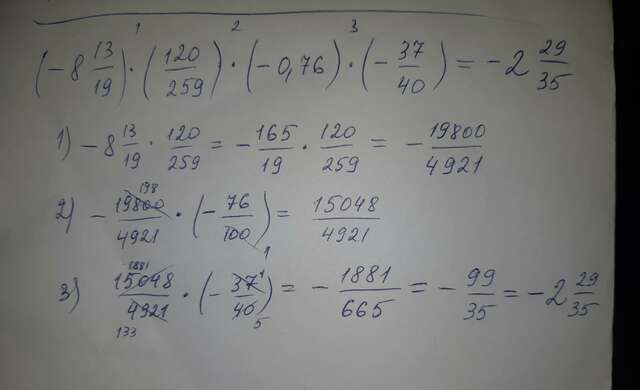 1 2 3
(-8 13/19) · (120/259) · (-0,76) · (-37/40) = -2 29/35
1) -8 13/19 · 120/259 = -165/19 · 120/259 = -19800/4921
198
2) -19800/4921 · (-76/100) = 15048/4921
1
1881 1
3) 15048/4921 · (-37/40) = -1881/665 = -99/35 = -2 29/35
133 5